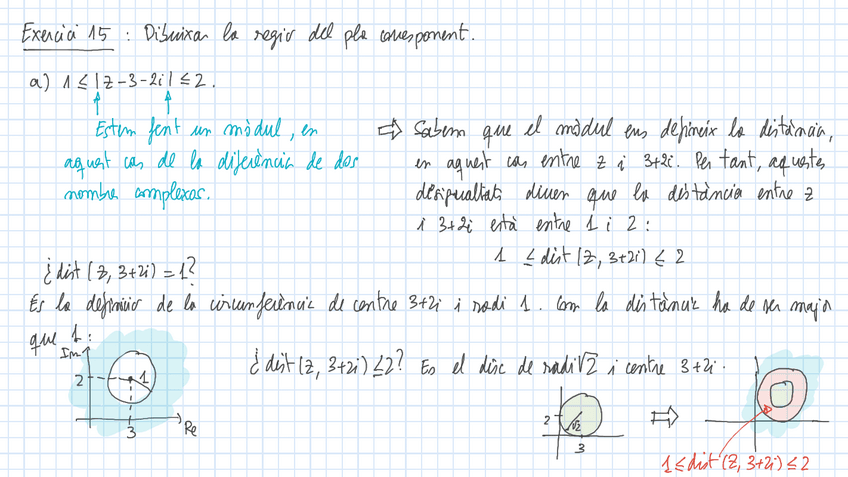 Exercici 15 : Dibuixar la regió del pla corresponent.
a) 1 ≤ |z-3-2i| ≤ 2.
Estem fent un mòdul, en
aquest cas de la diferència de dos
nombre complexos.
⇨ Sabem que el mòdul ens defineix la distància,
en aquest cas entre z i 3+2i. Per tant, aquestes
desigualtats diuen que la distància entre z
i 3+2i està entre 1 i 2 :
1 ≤ dist (z, 3+2i) ≤ 2
¿dist (z, 3+2i) = 1?
Es la definició de la circumferència de centre 3+2i i radi 1. Com la distància ha de ser major
que 1 :
Im
2
1
3
Re
¿dist (z, 3+2i) ≤ 2? Es el disc de radi √2 i centre 3+2i.
2
√2
3
⇨
1 ≤ dist (z, 3+2i) ≤ 2